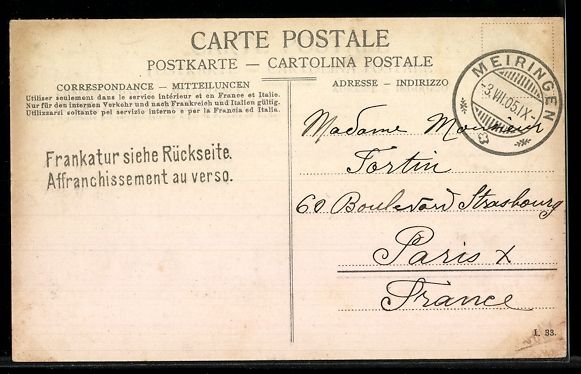 CARTE POSTALE
POSTKARTE — CARTOLINA POSTALE
CORRESPONDANCE — MITTEILUNGEN
Utiliser seulement dans le service intérieur et en France et Italie.
Nur für den internen Verkehr und nach Frankreich und Italien gültig.
Utilizzarsi soltanto pel servizio interno e per la Francia ed Italia.
Frankatur siehe Rückseite.
Affranchissement au verso.
ADRESSE — INDIRIZZO
MEIRINGEN
-3.VII.05.IX-
Madame Monsieur
Fortin
60 Boulevard Strasbourg
Paris X
France
I. 33.